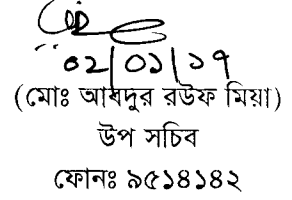 ০২/০১/১৭
(মোঃ আবদুর রউফ মিয়া)
উপ সচিব
ফোনঃ ৯৫১৪১৪২